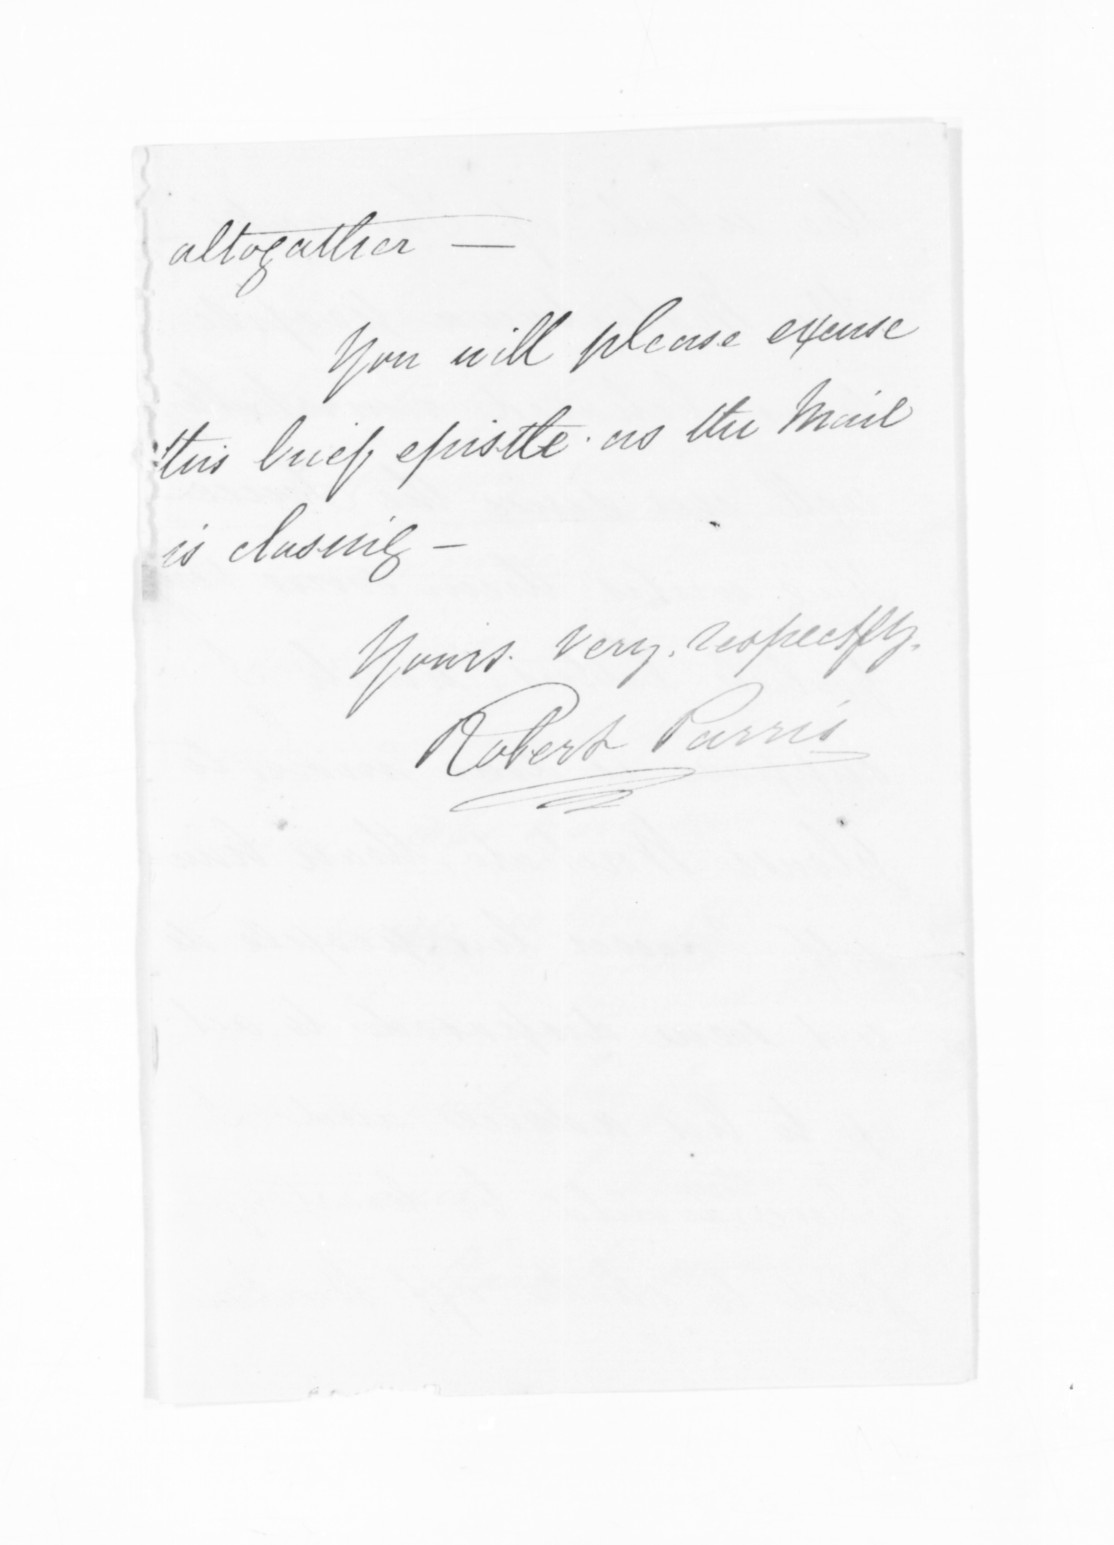 altogather —
You will please excuse
this brief epistle. as the Mail
is closing —
Yours. very. respectfly.
Robert Parris